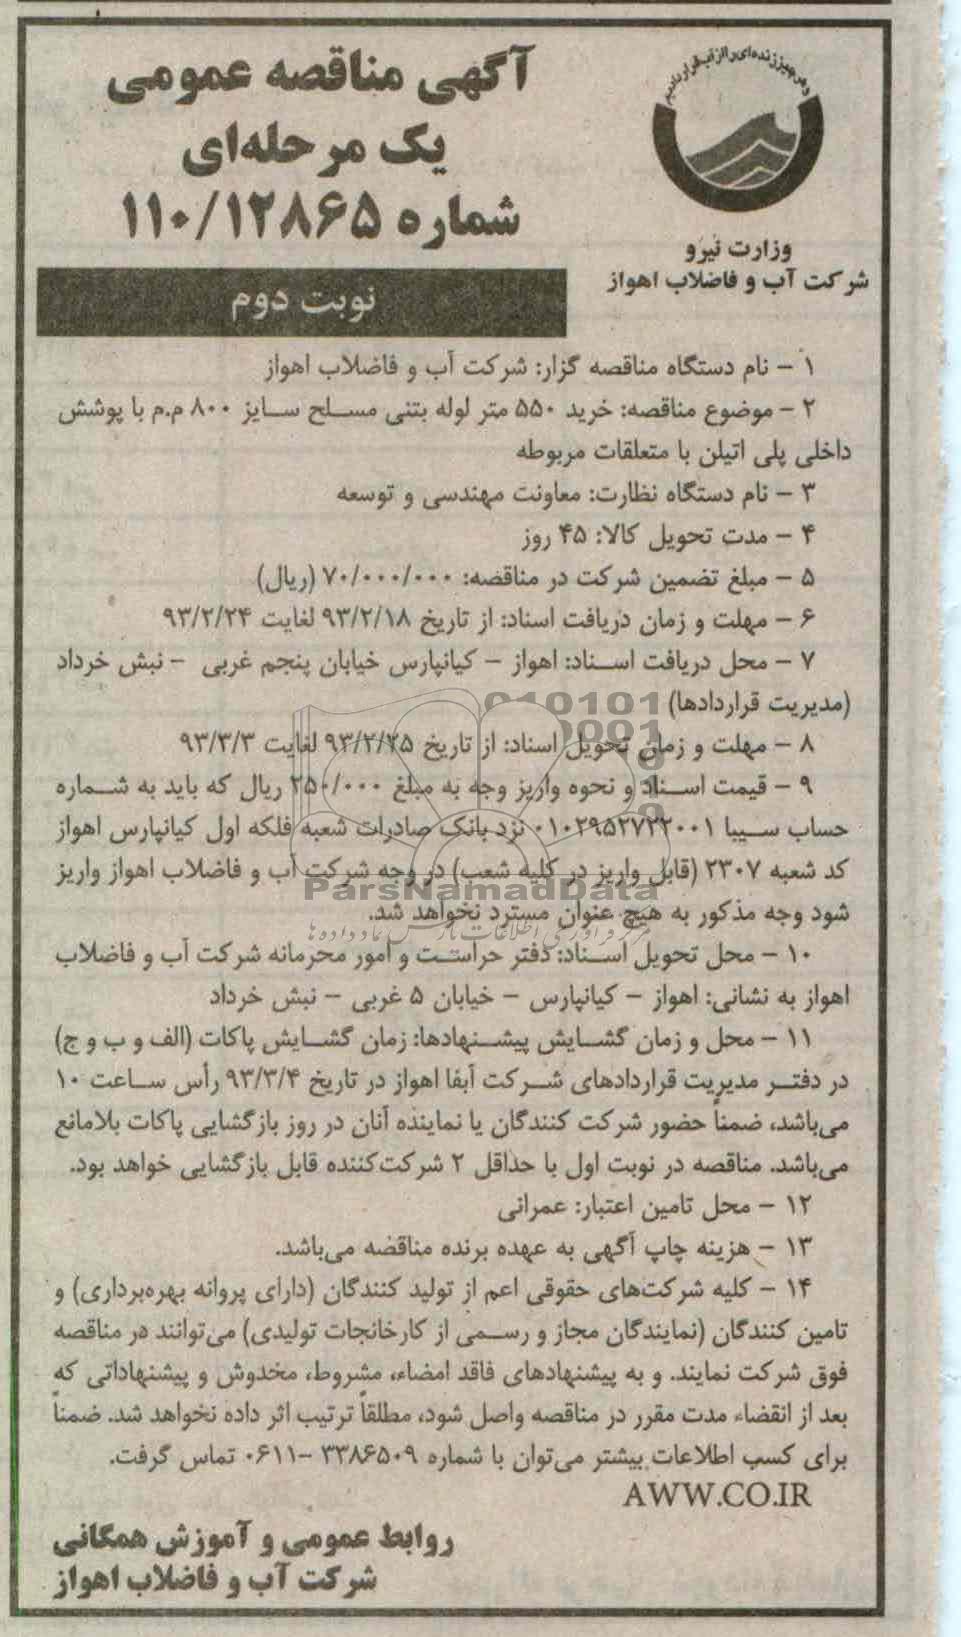 و هر چیز زنده‌ای را از آب قرار دادیم
وزارت نیرو
شرکت آب و فاضلاب اهواز
آگهی مناقصه عمومی
یک مرحله‌ای
شماره ۱۱۰/۱۲۸۶۵
نوبت دوم
۱ – نام دستگاه مناقصه گزار: شرکت آب و فاضلاب اهواز
۲ – موضوع مناقصه: خرید ۵۵۰ متر لوله بتنی مسلح سایز ۸۰۰ م.م با پوشش
داخلی پلی اتیلن با متعلقات مربوطه
۳ – نام دستگاه نظارت: معاونت مهندسی و توسعه
۴ – مدت تحویل کالا: ۴۵ روز
۵ – مبلغ تضمین شرکت در مناقصه: ۷۰/۰۰۰/۰۰۰ (ریال)
۶ – مهلت و زمان دریافت اسناد: از تاریخ ۹۳/۲/۱۸ لغایت ۹۳/۲/۲۴
۷ – محل دریافت اسناد: اهواز – کیانپارس خیابان پنجم غربی – نبش خرداد
(مدیریت قراردادها)
۸ – مهلت و زمان تحویل اسناد: از تاریخ ۹۳/۲/۲۵ لغایت ۹۳/۳/۳
۹ – قیمت اسناد و نحوه واریز وجه به مبلغ ۲۵۰/۰۰۰ ریال که باید به شماره
حساب سیبا ۰۱۰۲۹۵۲۷۲۲۰۰۱ نزد بانک صادرات شعبه فلکه اول کیانپارس اهواز
کد شعبه ۲۳۰۷ (قابل واریز در کلیه شعب) در وجه شرکت آب و فاضلاب اهواز واریز
شود وجه مذکور به هیچ عنوان مسترد نخواهد شد.
ParsNamadData
۱۰ – محل تحویل اسناد: دفتر حراست و امور محرمانه شرکت آب و فاضلاب
اهواز به نشانی: اهواز – کیانپارس – خیابان ۵ غربی – نبش خرداد
۱۱ – محل و زمان گشایش پیشنهادها: زمان گشایش پاکات (الف و ب و ج)
در دفتر مدیریت قراردادهای شرکت آبفا اهواز در تاریخ ۹۳/۳/۴ رأس ساعت ۱۰
می‌باشد، ضمناً حضور شرکت کنندگان یا نماینده آنان در روز بازگشایی پاکات بلامانع
می‌باشد. مناقصه در نوبت اول با حداقل ۲ شرکت‌کننده قابل بازگشایی خواهد بود.
۱۲ – محل تامین اعتبار: عمرانی
۱۳ – هزینه چاپ آگهی به عهده برنده مناقصه می‌باشد.
۱۴ – کلیه شرکت‌های حقوقی اعم از تولید کنندگان (دارای پروانه بهره‌برداری) و
تامین کنندگان (نمایندگان مجاز و رسمی از کارخانجات تولیدی) می‌توانند در مناقصه
فوق شرکت نمایند. و به پیشنهادهای فاقد امضاء، مشروط، مخدوش و پیشنهاداتی که
بعد از انقضاء مدت مقرر در مناقصه واصل شود، مطلقاً ترتیب اثر داده نخواهد شد. ضمناً
برای کسب اطلاعات بیشتر می‌توان با شماره ۳۳۸۶۵۰۹ –۰۶۱۱ تماس گرفت.
AWW.CO.IR
روابط عمومی و آموزش همگانی
شرکت آب و فاضلاب اهواز